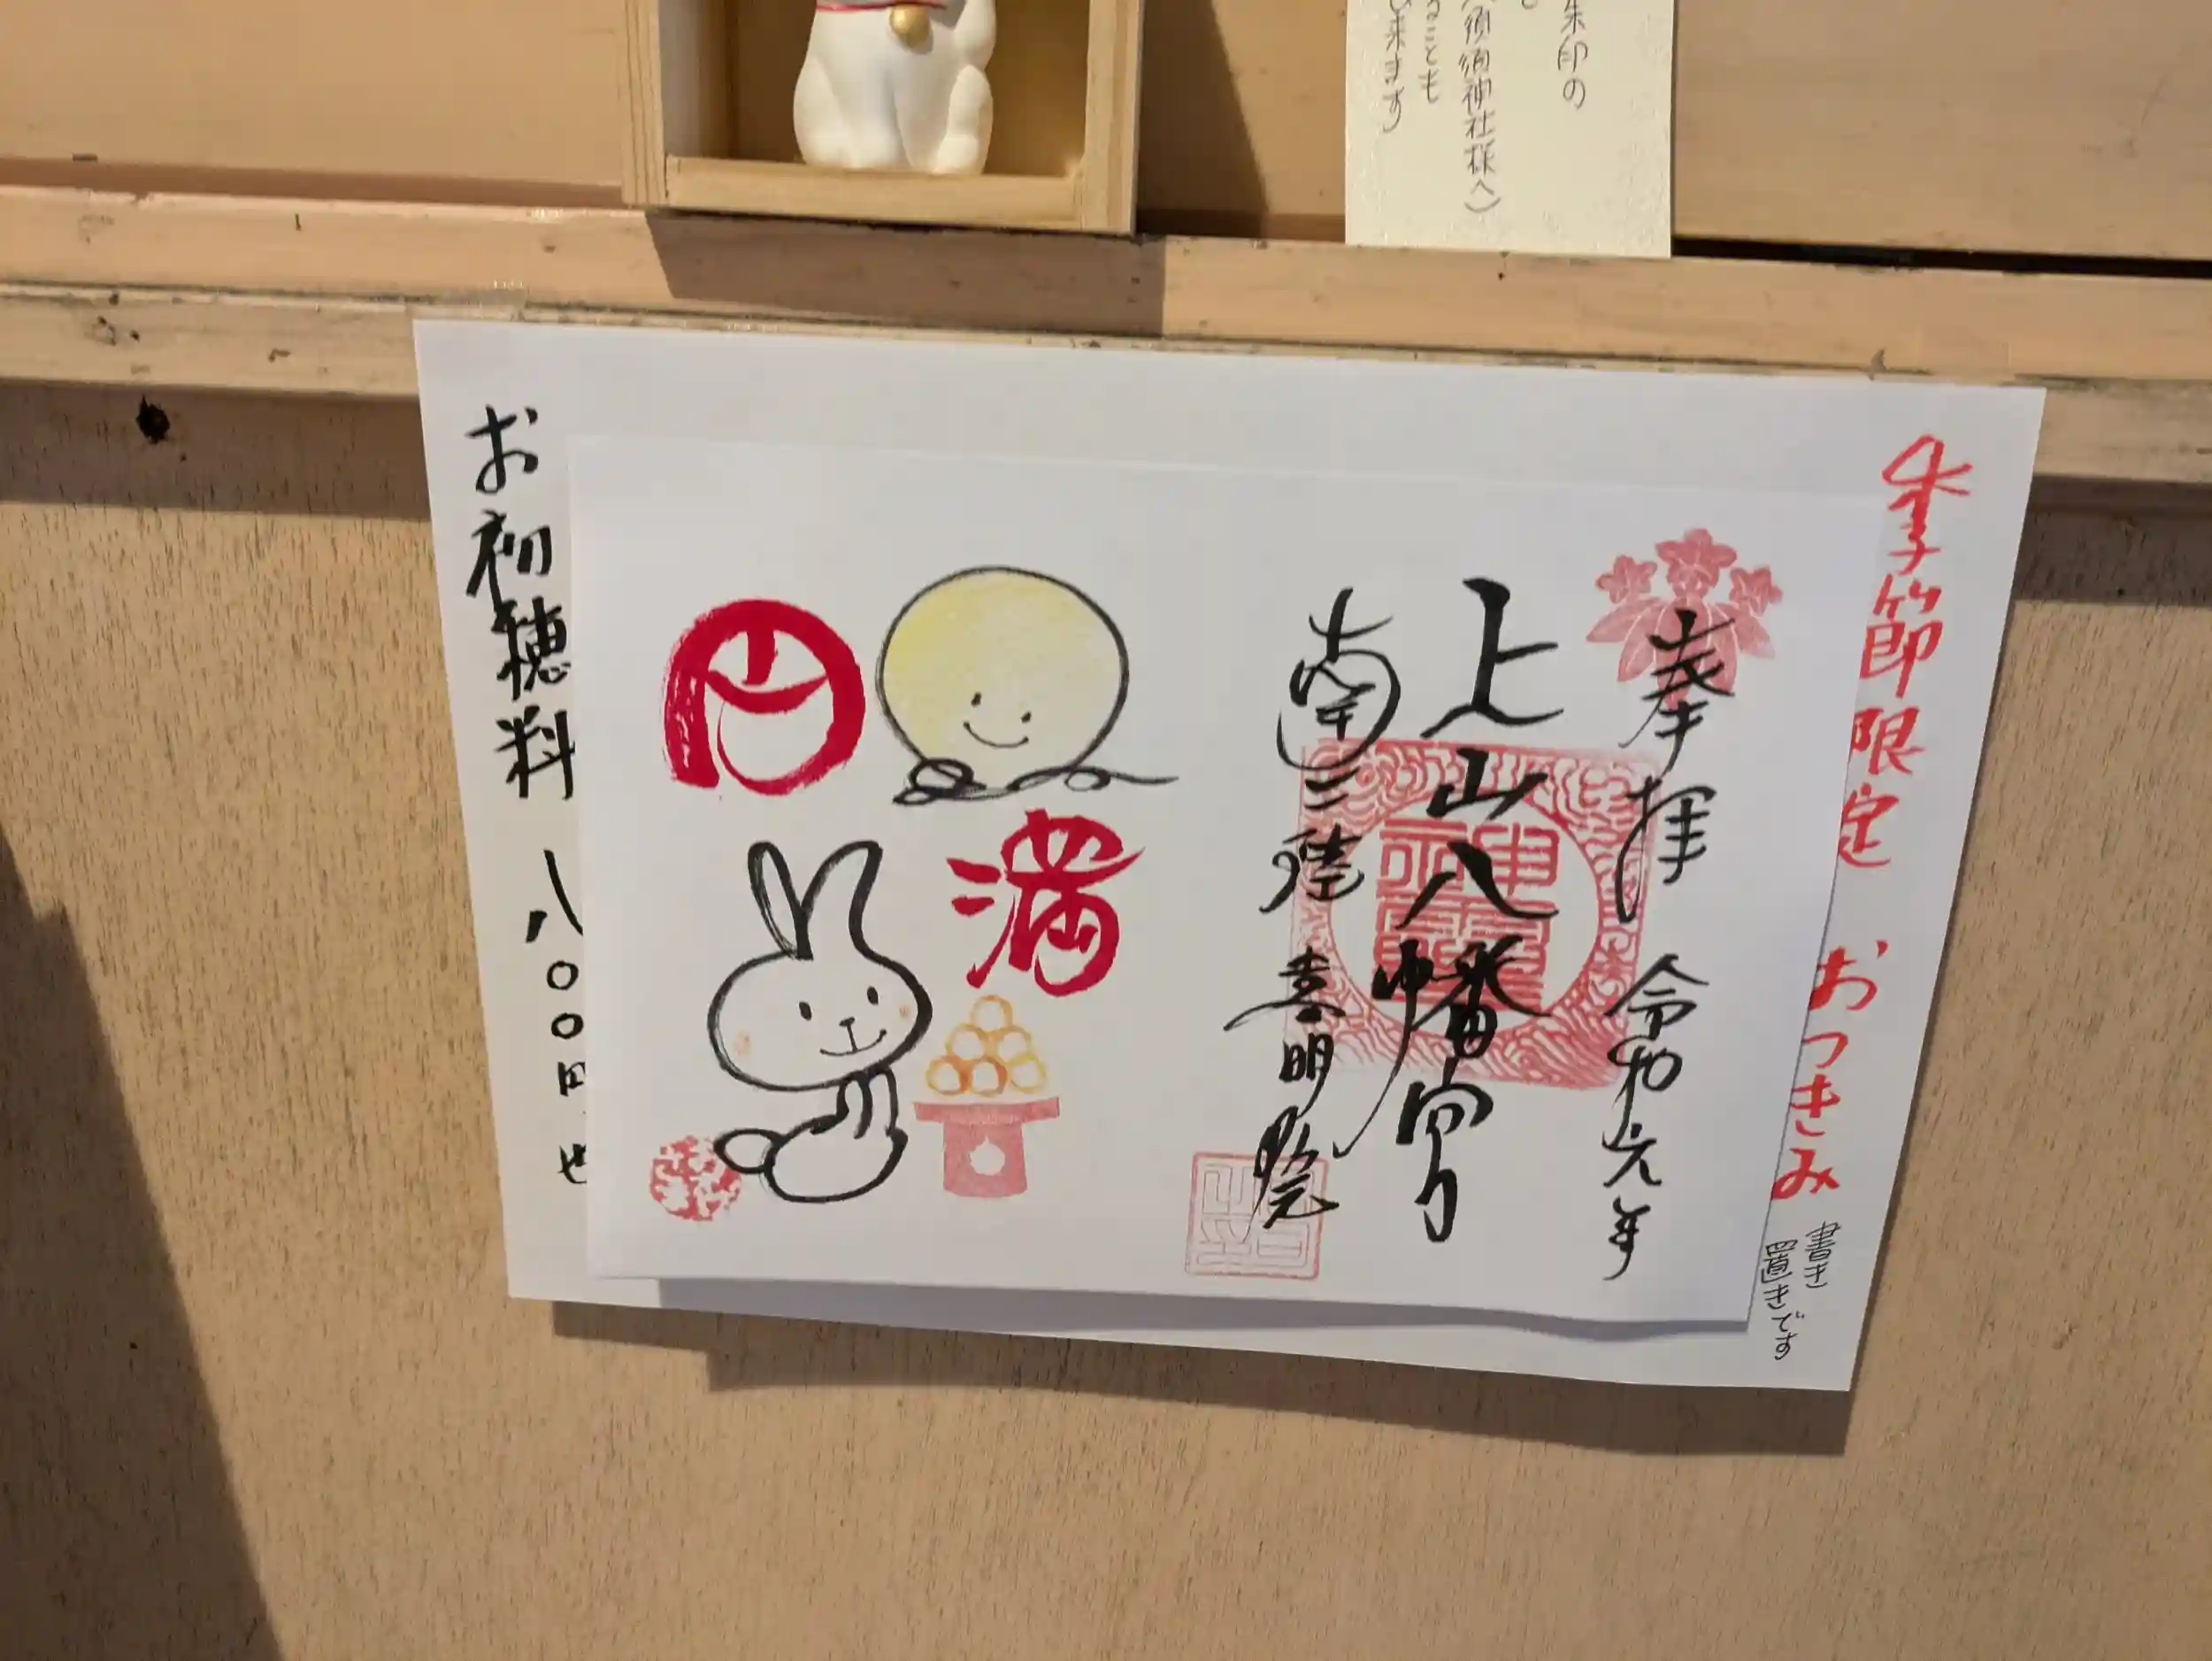 朱印の
(須賀神社様へ)
ることも
来ます
季節限定 おつきみ
書き
置きです
奉拝 令和元年
上山八幡宮
南三陸 喜明院
円
満
お初穂料 八〇〇円也